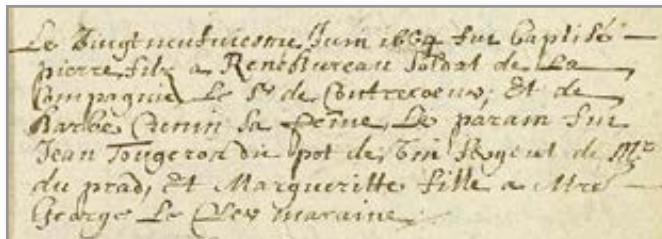 Le Vingtneufviesme Juin 1664 fut baptisé
pierre fils a René Bureau soldat de La
Compagnie Le Sr de Contrecoeur, Et de
Barbe Cunin sa feme, Le parain fut
Jean Tougeron dit pot de vin Sergent de Mr
du prad, Et Margueritte fille a Mre
George Le Clerc maraine